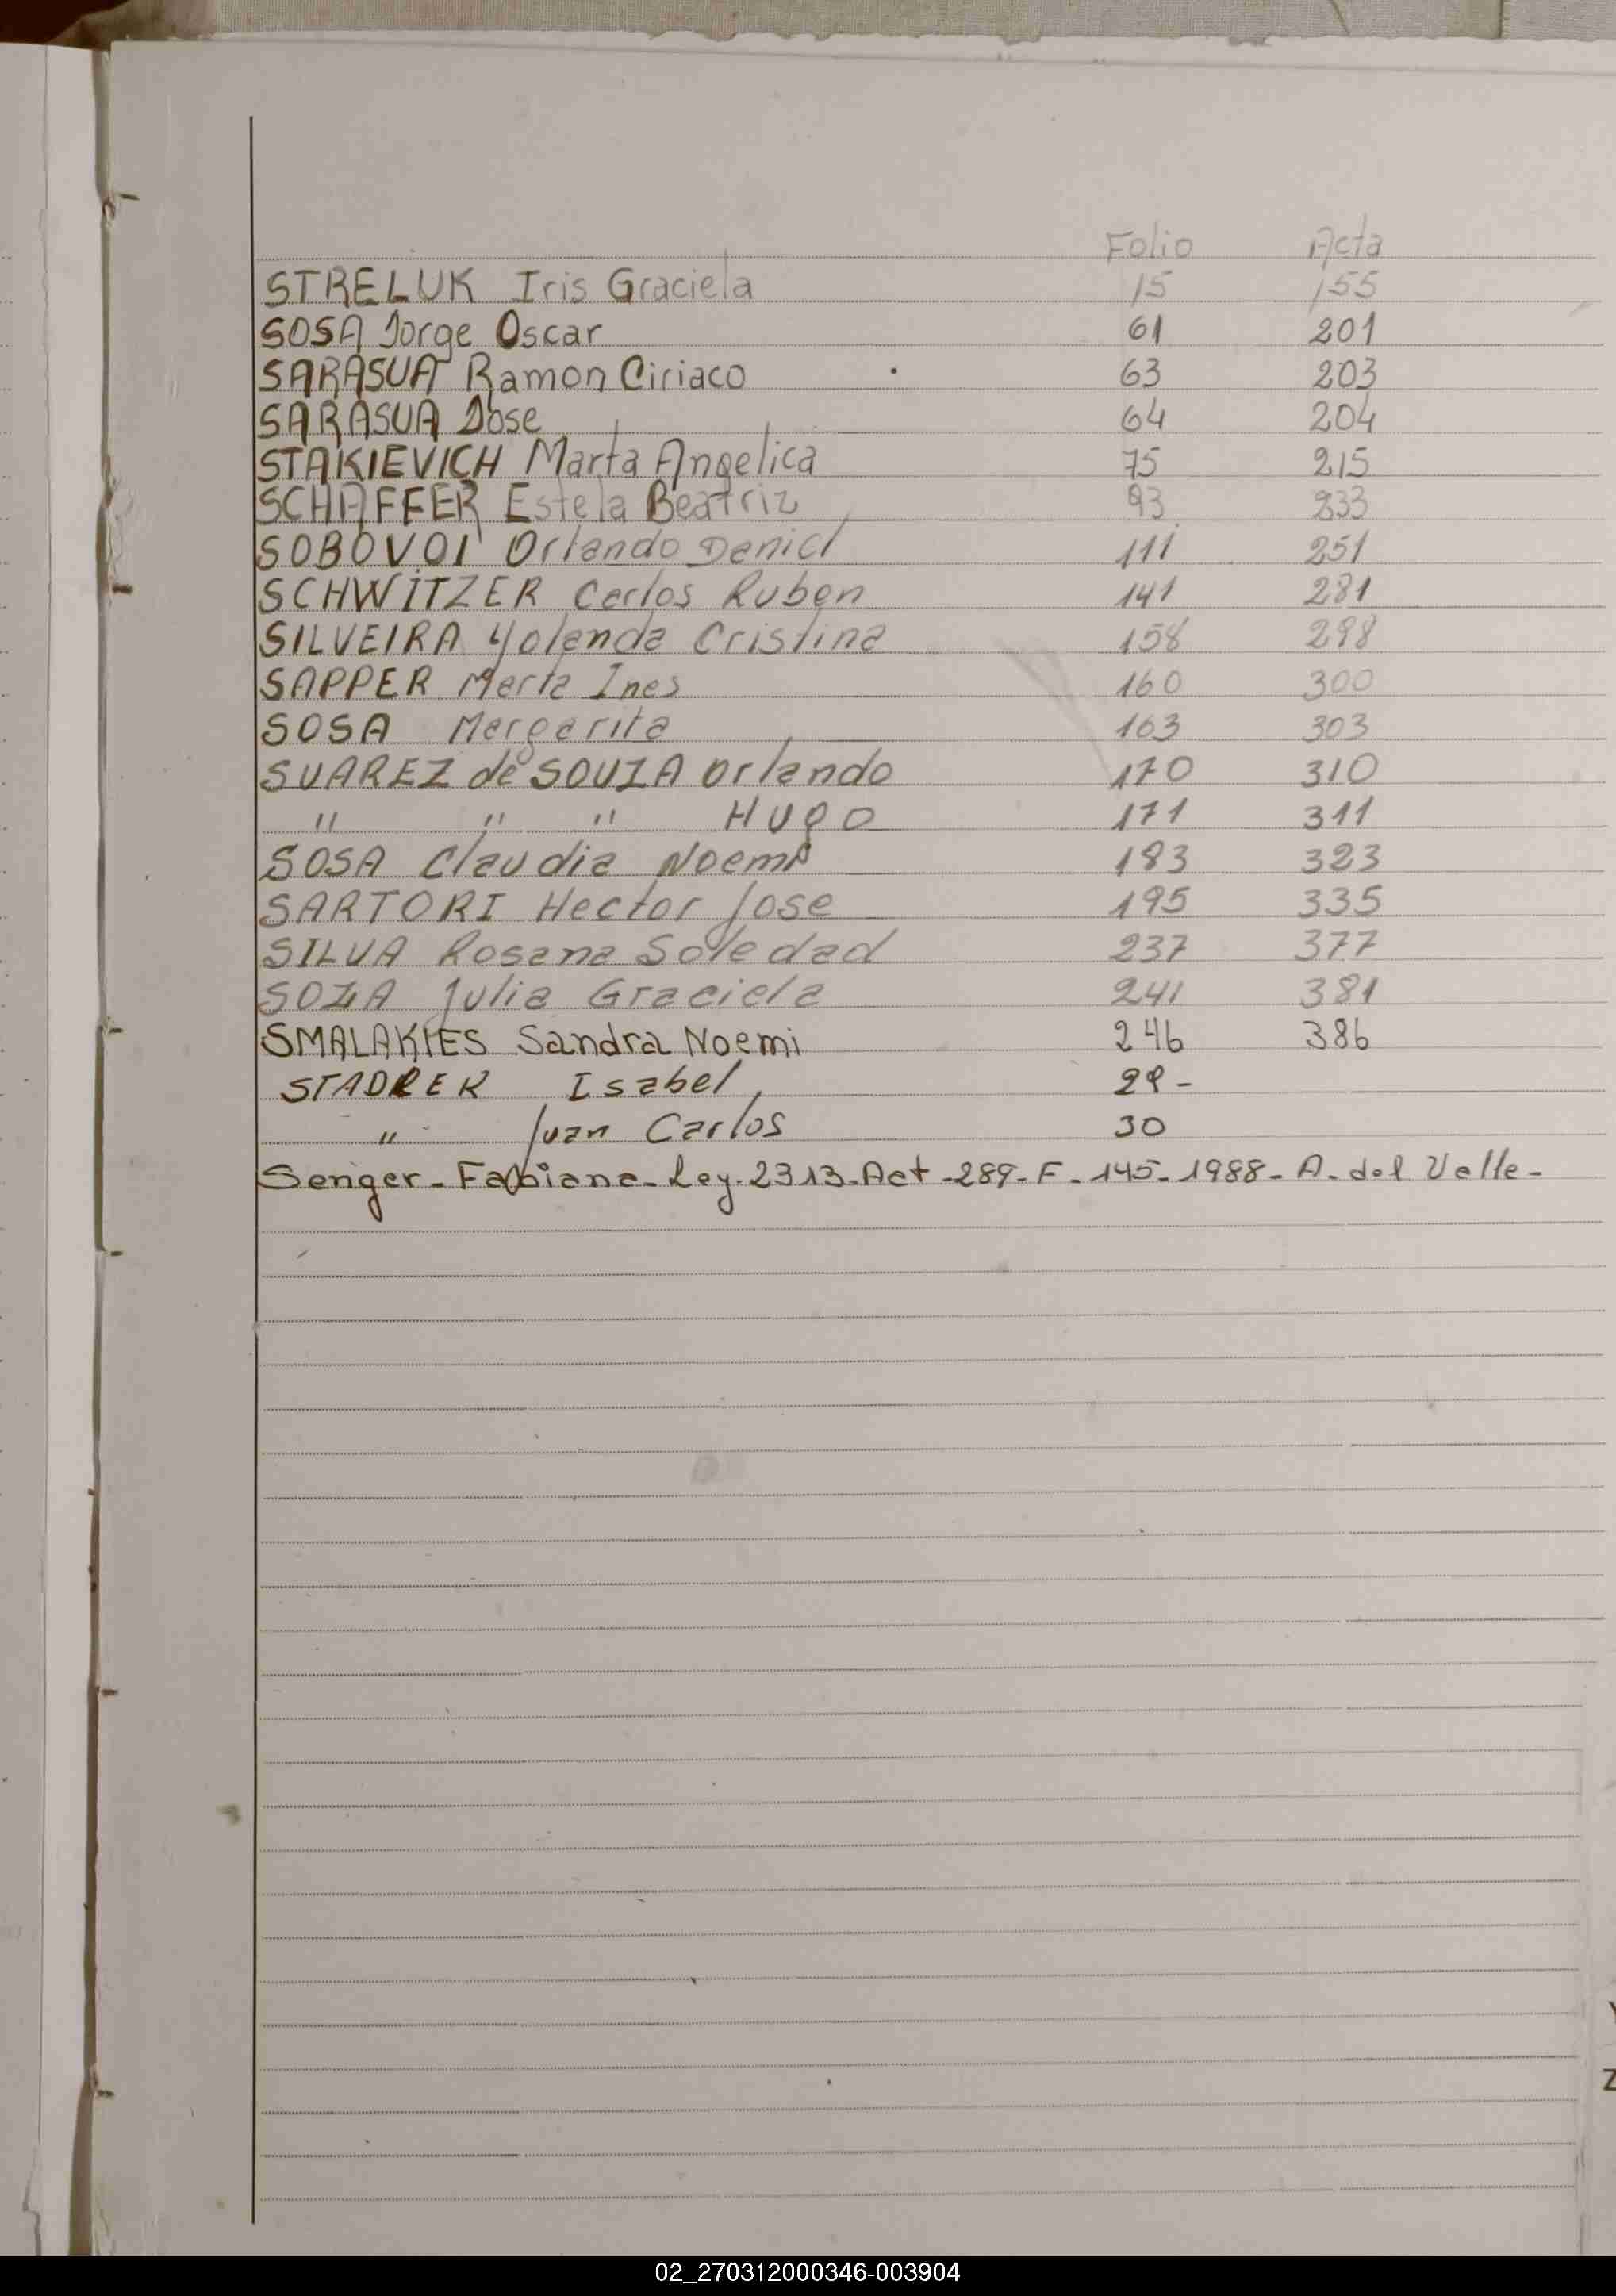 Folio Acta
STRELUK Iris Graciela 15 155
SOSA Jorge Oscar 61 201
SARASUA Ramon Ciriaco 63 203
SARASUA Jose 64 204
STAKIEVICH Marta Angelica 75 215
SCHAFFER Estela Beatriz 93 233
SOBOVOI Orlando Daniel 111 251
SCHWITZER Carlos Ruben 141 281
SILVEIRA Yolanda Cristina 158 298
SAPPER Marta Ines 160 300
SOSA Margarita 163 303
SUAREZ de SOUZA Orlando 170 310
" " " HUGO 171 311
SOSA Claudia Noemi 183 323
SARTORI Hector Jose 195 335
SILVA Rosana Soledad 237 377
SOZA Julia Graciela 241 381
SMALAKIES Sandra Noemi 246 386
Isabel 29-
" Juan Carlos 30
Senger-Fabiana-Ley-2313-Act-289-F-145-1988-A-del Valle-
Z
02_270312000346-003904